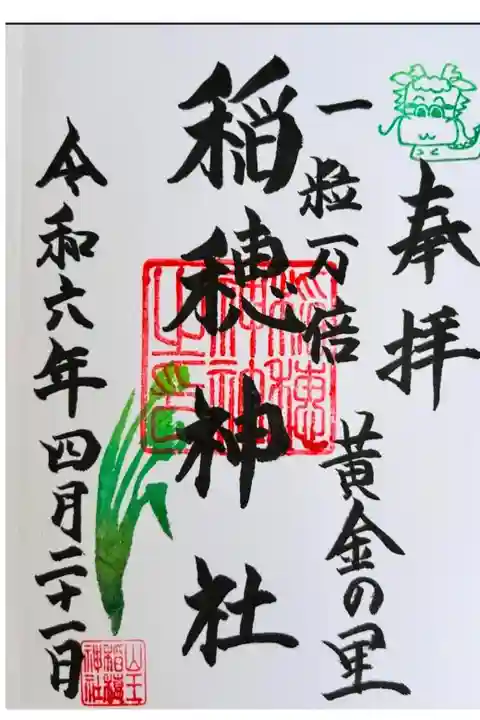 奉拝
一粒万倍 黄金の里
稲穂神社
令和六年四月二十一日
山王
稲穂
神社